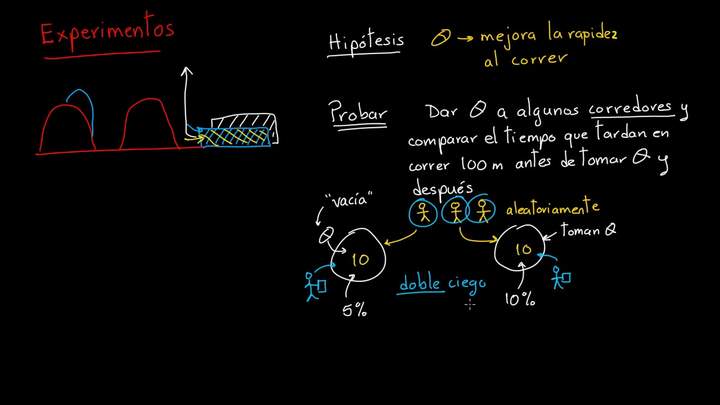 Experimentos
Hipótesis θ → mejora la rapidez
al correr
Probar Dar θ a algunos corredores y
comparar el tiempo que tardan en
correr 100 m antes de tomar θ y
después
"vacía"
aleatoriamente
θ
toman θ
10
10
doble ciego
5%
10%